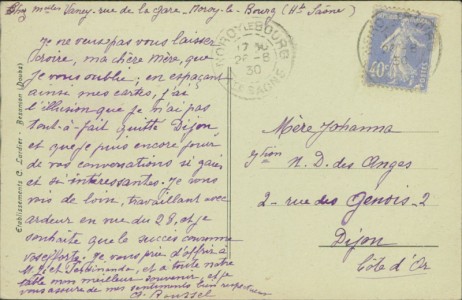 Chez Melles Vancy - rue de la gare - Noroy-le-Bourg (Hte Saône)
Je ne veux pas vous laisser
croire, ma chère Mère, que
je vous oublie; en espaçant
ainsi mes cartes, j'ai
l'illusion que je n'ai pas
tout-à-fait quitté Dijon,
et que je puis encore jouir
de vos conversations si gaies
et si intéressantes. Je vous
vois de loin, travaillant avec
ardeur en vue du 28, et je
souhaite que le succès couronne
vos efforts. Je vous prie d'offrir à
et Ferdinande, et à toute notre
table mon meilleur souvenir, et je
vous assure de mes sentiments bien respectueux
Roussel
Etablissements C. Lardier - Besançon (Doubs)
NOROY-LE-BOURG
17 30
25-8
30
HTE SAONE
40c
Mère Johanna
N. D. des Anges
2 - rue des Genois - 2
Dijon
Côte d'Or